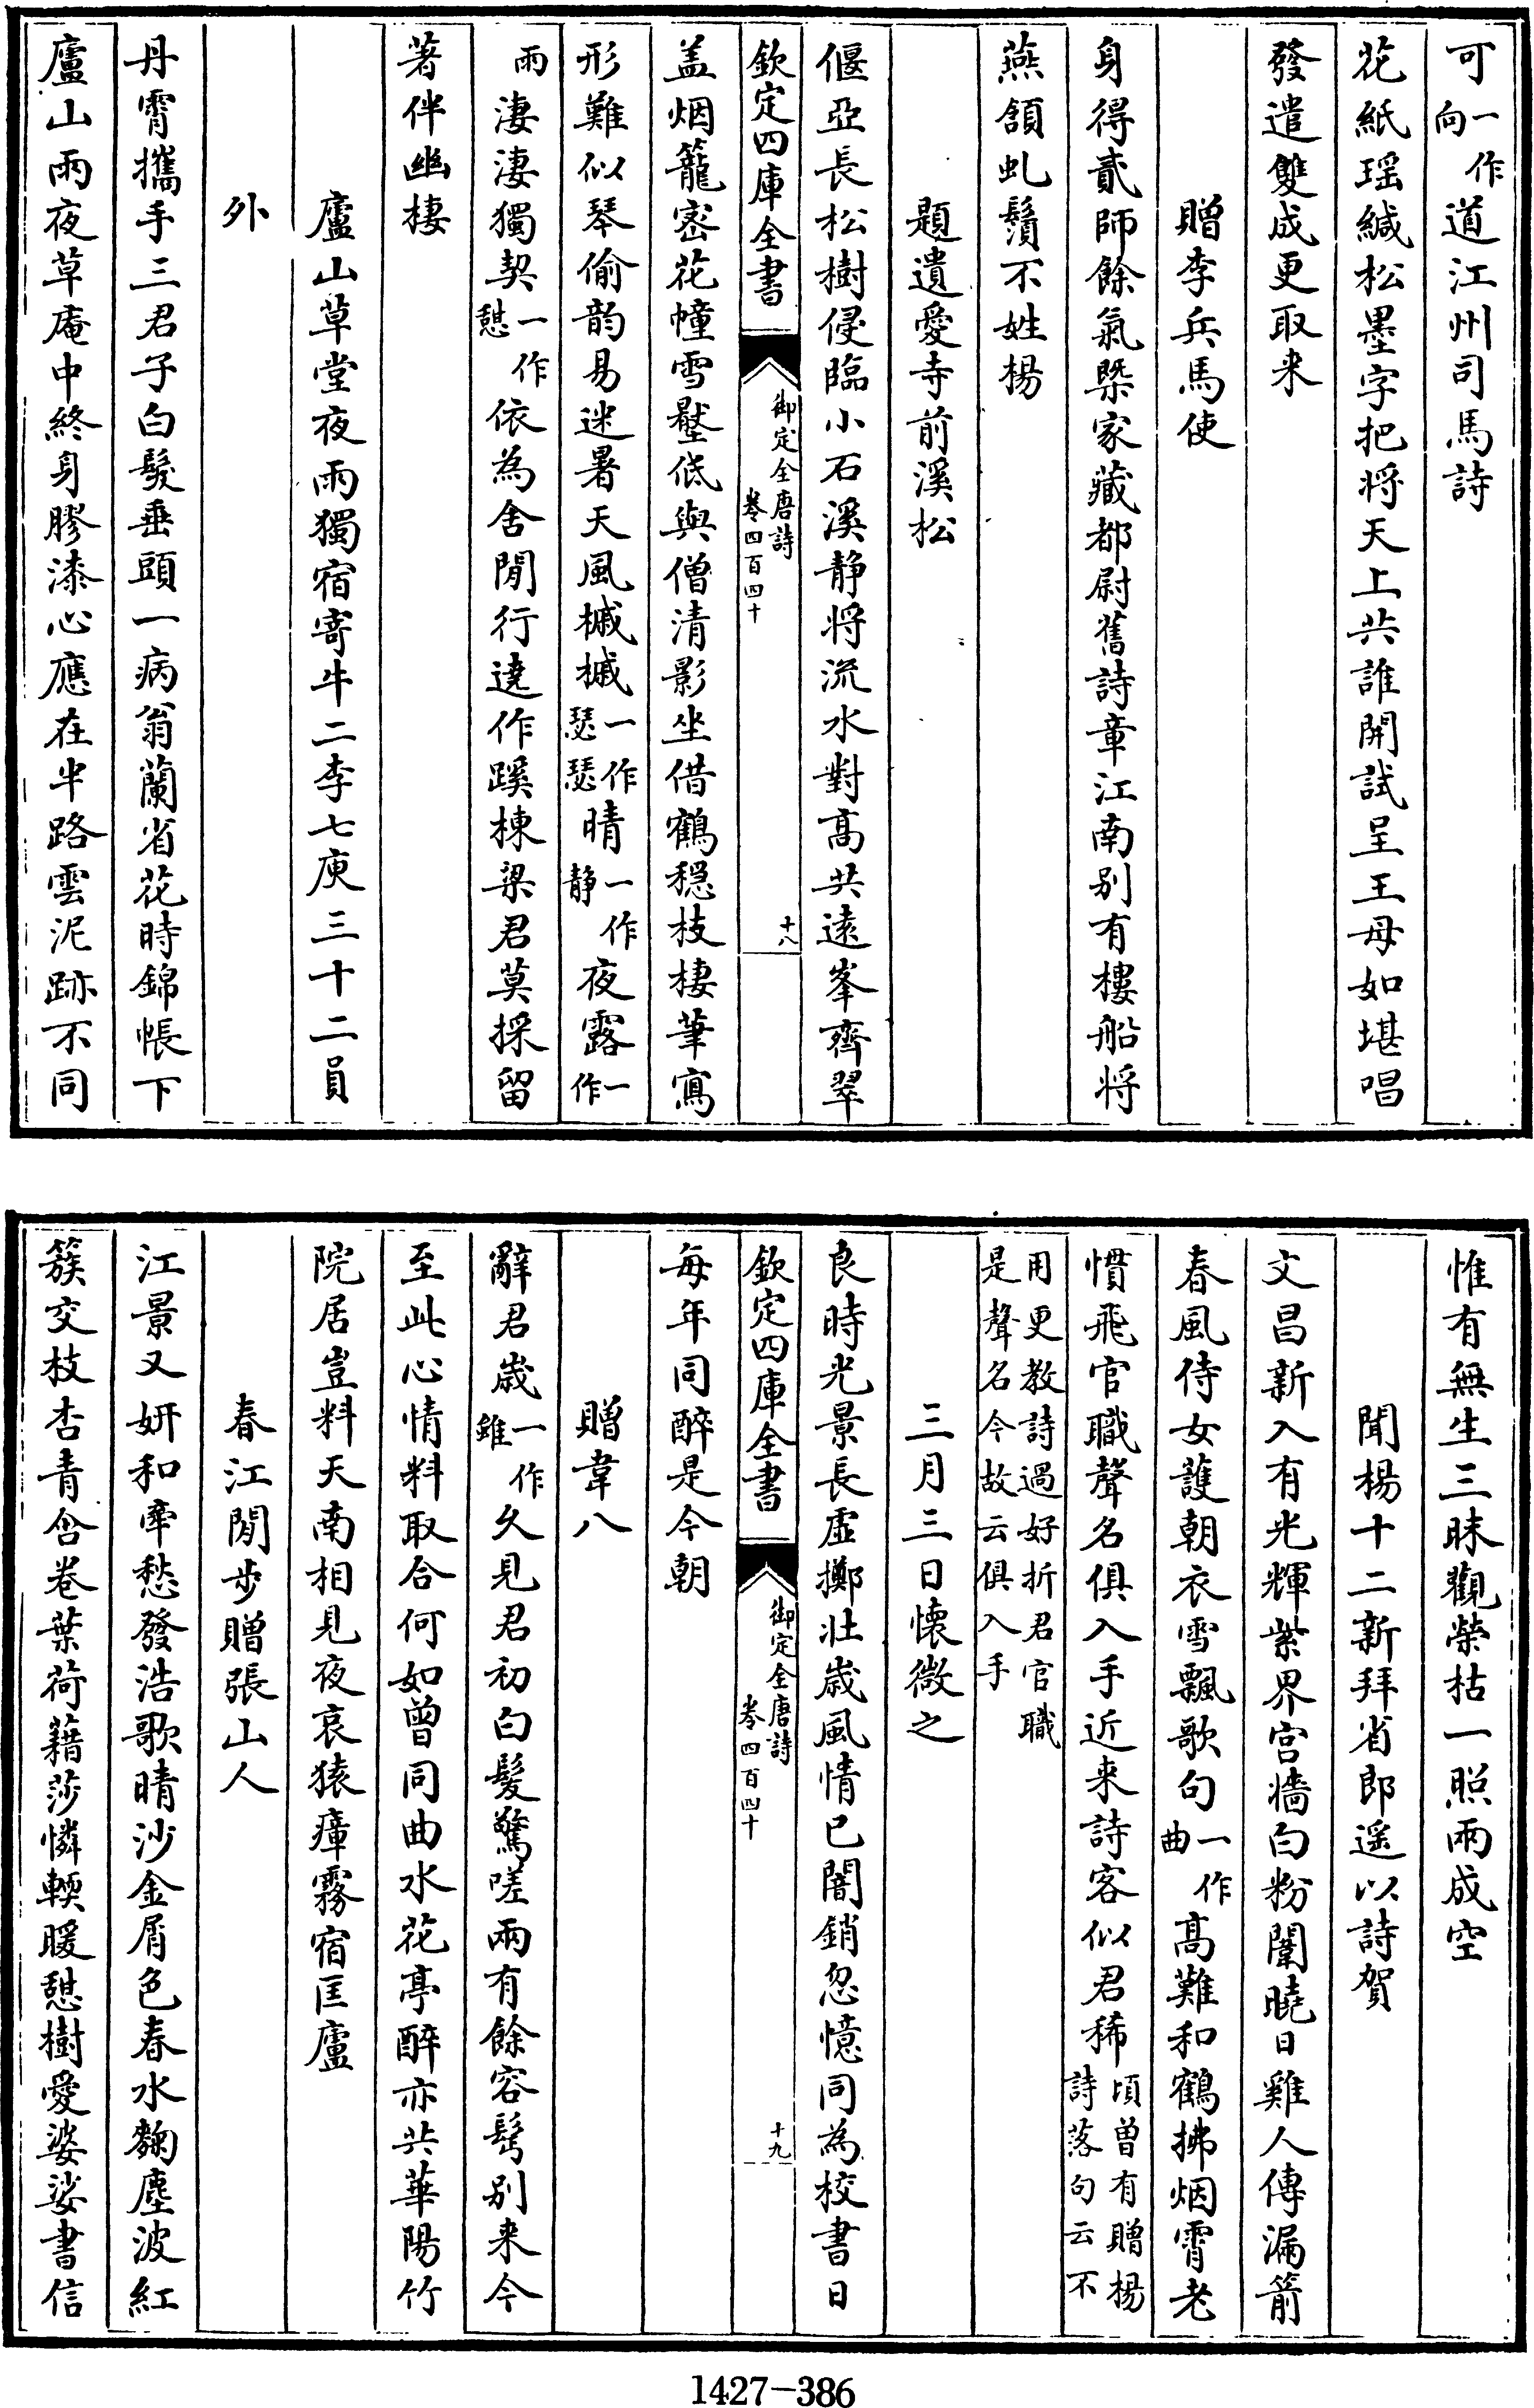 可一作向道江州司馬詩
花紙瑶緘松墨字把将天上共誰開試呈王母如堪唱
發遣雙成更取来
贈李兵馬使
身得貳師餘氣槩家藏都尉舊詩章江南别有樓船将
燕頷虬鬚不姓楊
題遺愛寺前溪松
偃亞長松樹侵臨小石溪静将流水對髙共逺峯齊翠
欽定四庫全書
御定全唐詩
卷四百四十
十八
盖烟籠宻花幢雪壓低與僧清影坐借鶴穏枝棲筆寫
形難似琴偷韵易迷暑天風槭槭一作瑟瑟晴一作静夜露一作
雨淒淒獨契一作憩依為舍閒行遶作蹊棟梁君莫採留
著伴幽棲
廬山草堂夜雨獨宿寄牛二李七庾三十二員
外
丹霄攜手三君子白髮垂頭一病翁蘭省花時錦帳下
廬山雨夜草庵中終身膠漆心應在半路雲泥跡不同
惟有無生三昧觀榮枯一照兩成空
聞楊十二新拜省郎遥以詩賀
文昌新入有光輝紫界宫牆白粉闈曉日雞人傳漏箭
春風侍女䕶朝衣雪飄歌句一作曲髙難和鶴拂烟霄老
慣飛官職聲名俱入手近来詩客似君稀頃曽有贈楊詩落句云不
用更教詩過好折君官職是聲名今故云俱入手
三月三日懐微之
良時光景長虚擲壯嵗風情已闇銷忽憶同為校書日
欽定四庫全書
御定全唐詩
卷四百四十
十九
每年同醉是今朝
贈韋八
辭君嵗一作雖久見君初白髮驚嗟兩有餘容鬂别来今
至此心情料取合何如曽同曲水花亭醉亦共華陽竹
院居豈料天南相見夜哀猿瘴霧宿匡廬
春江閒步贈張山人
江景又妍和牽愁發浩歌晴沙金屑色春水麴塵波紅
簇交枝杏青含卷葉荷藉莎憐輭暖憩樹愛婆娑書信
1427-386